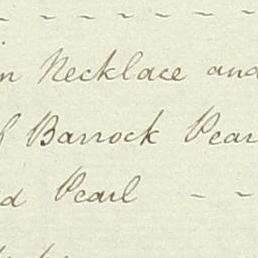 in Necklace and
of Barrock Pear
d Pearl - -